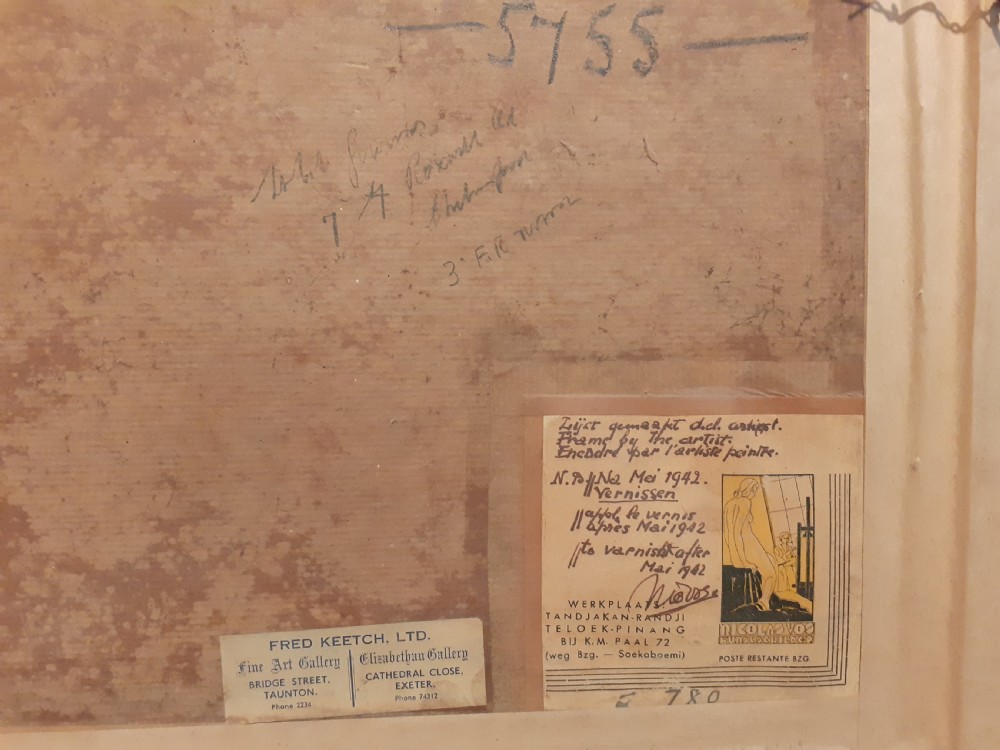 — 5755 —
7 A
3
Lijst gemaakt d.d. artiest.
Frame by the artist.
Encadré par l'artiste peintre.
N.B. Na Mei 1942.
Vernissen
appl. le vernis
après Mai 1942
to varnish after
Mai 1942
WERKPLAATS
TANDJAKAN-RANDJI
TELOEK-PINANG
BIJ K.M. PAAL 72
(weg Bzg. — Soekaboemi)
NICOLAS VOS
KUNSTSCHILDER
POSTE RESTANTE BZG.
780
FRED KEETCH, LTD.
Fine Art Gallery
BRIDGE STREET,
TAUNTON.
Phone 2234
Elizabethan Gallery
CATHEDRAL CLOSE,
EXETER.
Phone 74312